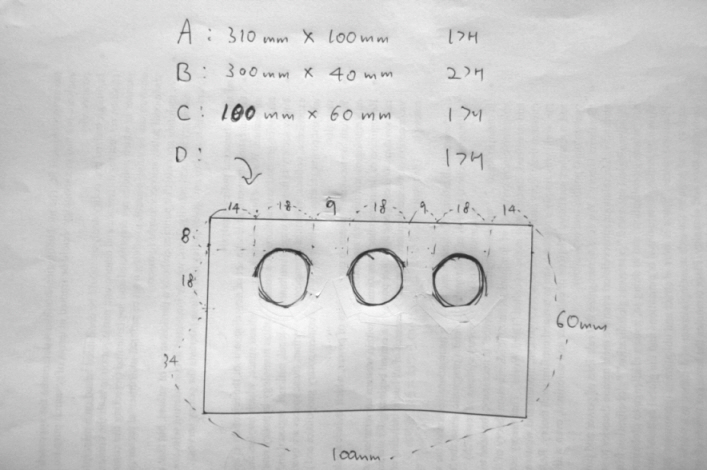 A: 310mm × 100mm 1つ
B: 300mm × 40mm 2つ
C: 100mm × 60mm 1つ
D: 1つ
14 18 9 18 9 18 14
8
18
34
60mm
100mm